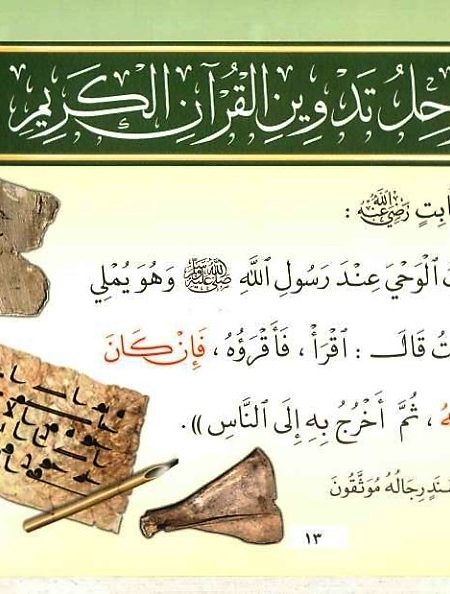 حِلُ تَدْوِينِ الْقُرْآنِ الْكَرِيمِ
ابِتٍ رَضِيَ اللَّهُ عَنْهُ :
الْوَحْيَ عِنْدَ رَسُولِ اللَّهِ ﷺ وَهُوَ يُمْلِي
تُ قَالَ : اقْرَأْ ، فَأَقْرَؤُهُ ، فَإِنْ كَانَ
هُ ، ثُمَّ أَخْرُجُ بِهِ إِلَى النَّاسِ )).
سَنَدٍ رِجَالُهُ مُوَثَّقُونَ
١٣